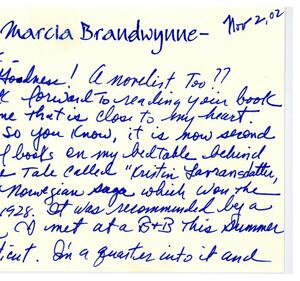 Nov 2, 02
Marcia Brandwynne-
Goodness! A novelist Too??
k forward to reading your book
me that is close to my heart
So you know, it is now second
f books on my bedtable behind
e Tale called "Kristin Lavransdatter,
Norwegian saga which won the
1928. It was recommended by a
I met at a B+B this summer
ticut. I'm a quarter into it and